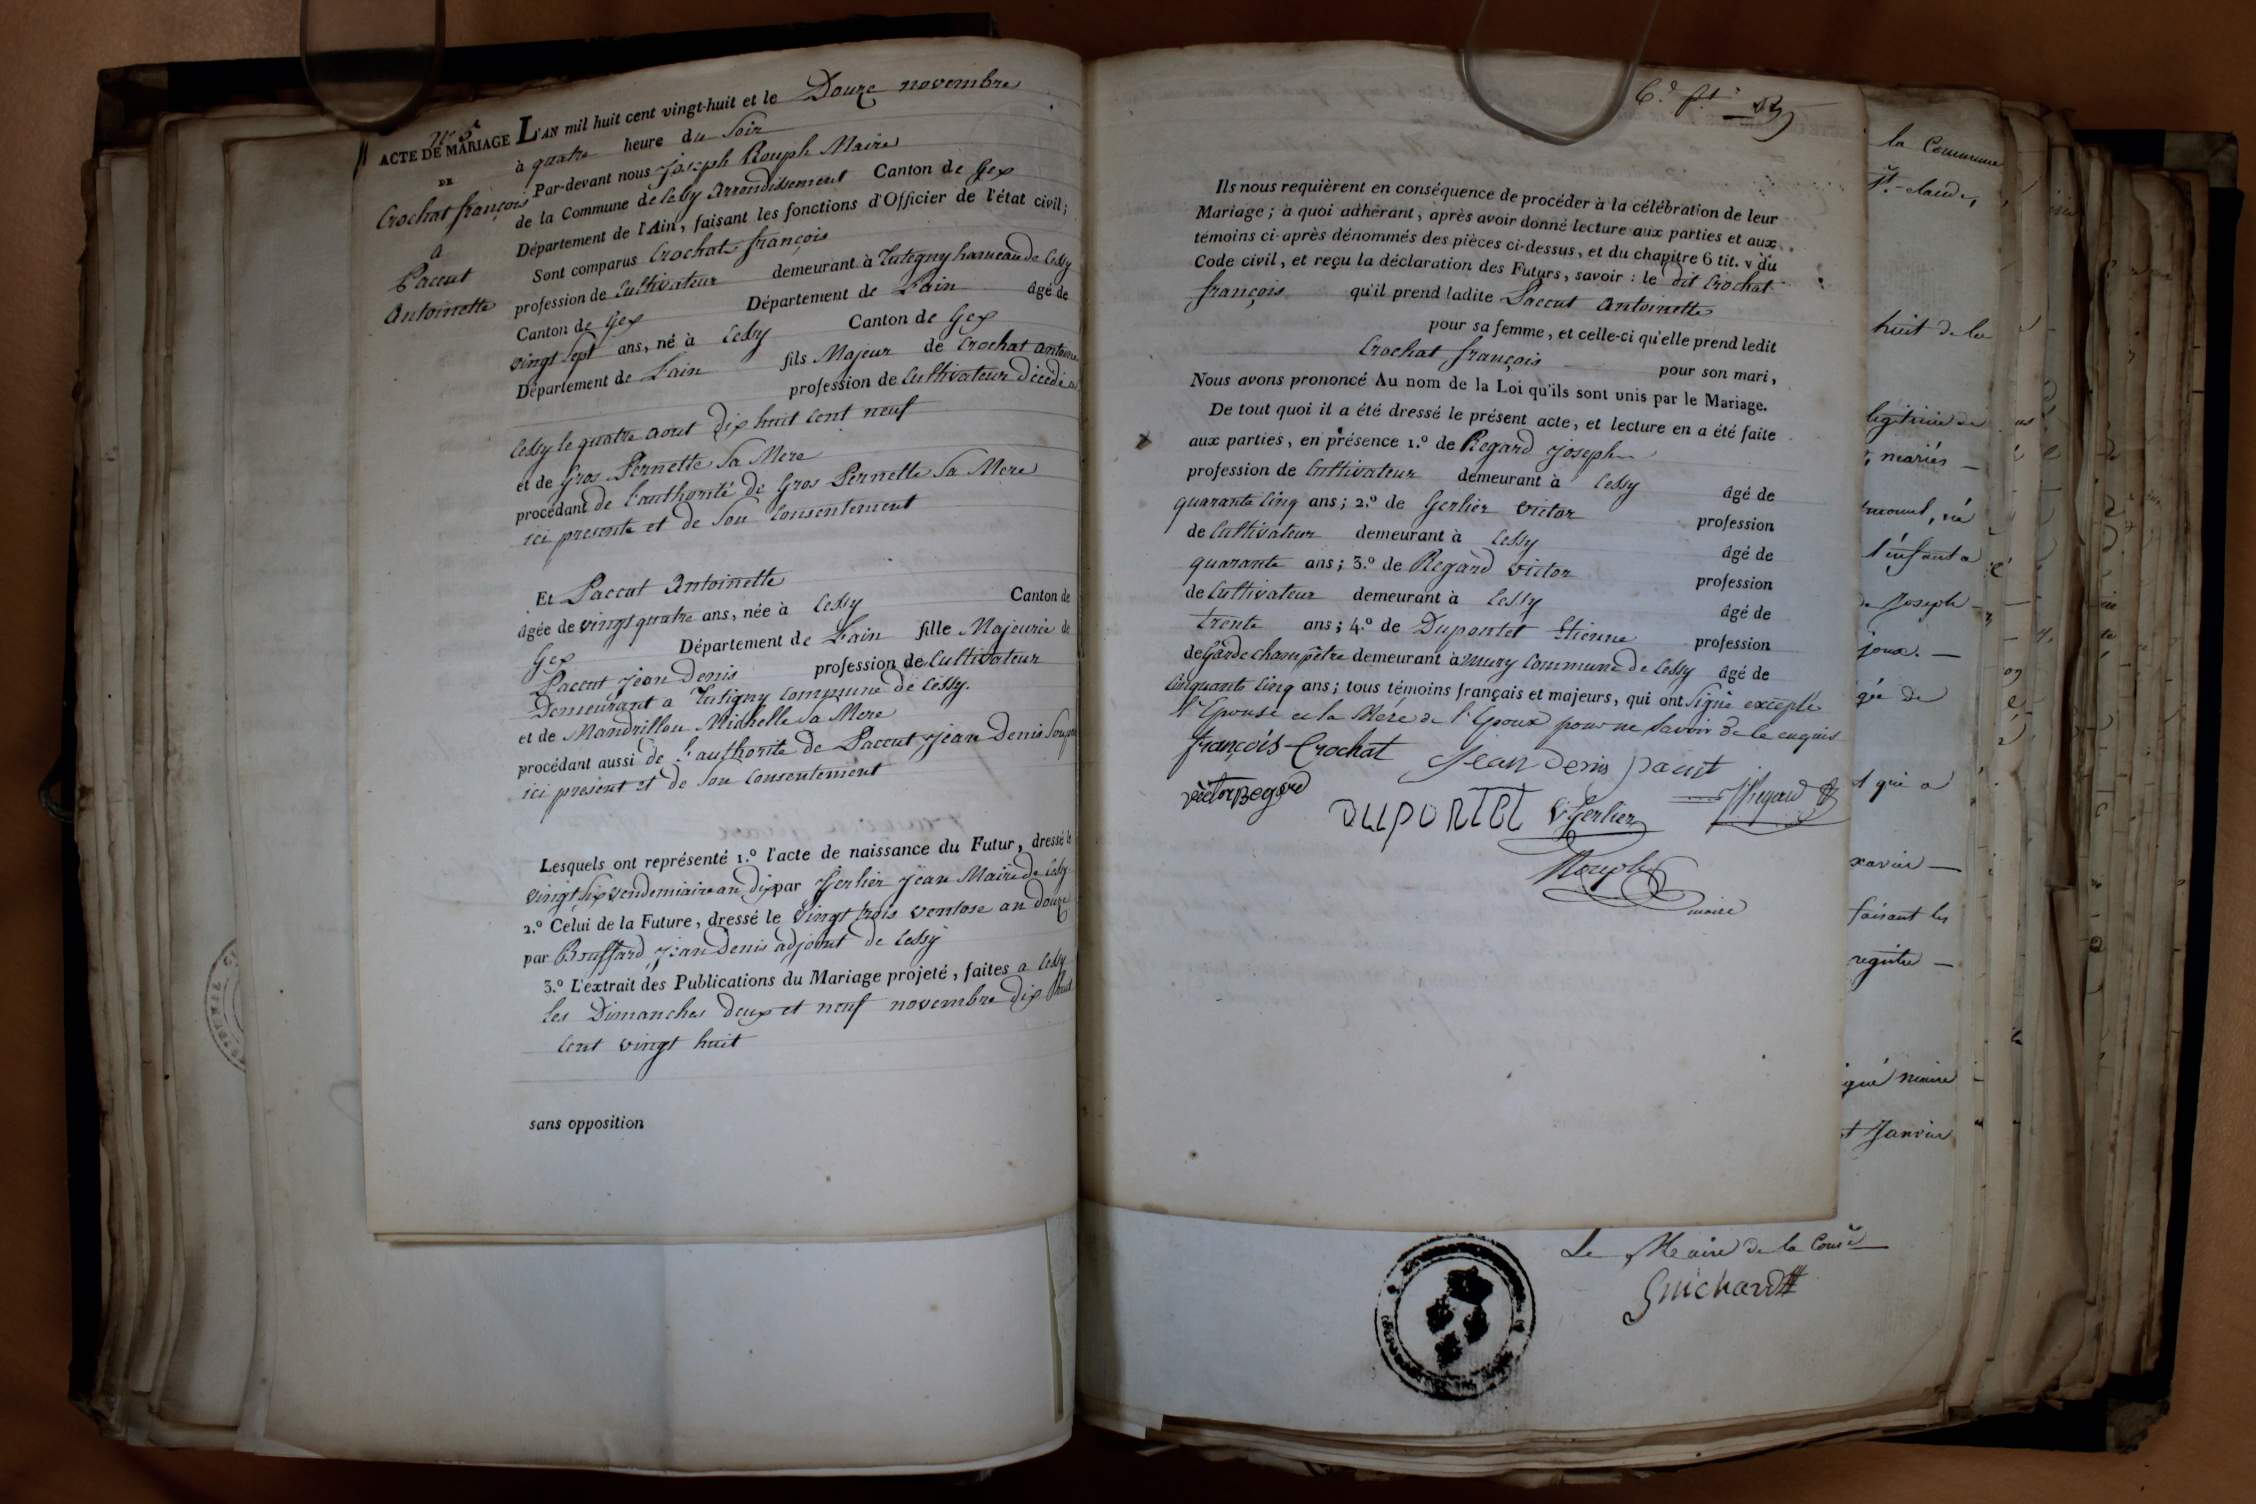 N.º 5
ACTE DE MARIAGE
DE
Crochat françois
à
Paccut
Antoinette
L'AN mil huit cent vingt-huit et le Douze novembre
à quatre heure du Soir
Par-devant nous Joseph Rouph Maire
de la Commune de Cessy Arrondissement Canton de Gex
Département de l'Ain, faisant les fonctions d'Officier de l'état civil;
Sont comparus Crochat françois
profession de Cultivateur demeurant à Tutegny hameau de Cessy
Canton de Gex Département de L'ain âgé de
vingt Sept ans, né à Cessy Canton de Gex
Département de L'ain fils Majeur de Crochat Antoine
profession de Cultivateur décédé a
Cessy le quatre aout dix huit Cent neuf
et de Gros Pernette Sa Mere
procédant de l'authorité de Gros Pernette Sa Mere
ici presente et de Son Consentement
Et Paccut Antoinette
âgée de vingt quatre ans, née à Cessy Canton de
Gex Département de L'ain fille Majeurie de
Paccut Jean Denis profession de Cultivateur
Demeurant a Tutigny Commune de Cessy.
et de Mandrillon Michelle Sa Mere
procédant aussi de l'authorité de Paccut Jean Denis Son
ici present et de Son Consentement
Lesquels ont représenté 1.º l'acte de naissance du Futur, dressé le
vingt six vendemiaire an dix par Gerlier Jean Maire de Cessy
2.º Celui de la Future, dressé le Vingt trois ventose an douze
par Bouffard Jean Denis adjoint de Cessy
3.º L'extrait des Publications du Mariage projeté, faites a Cessy
les Dimanches deux et neuf novembre dix huit
Cent vingt huit
sans opposition
Ils nous requièrent en conséquence de procéder à la célébration de leur
Mariage; à quoi adhérant, après avoir donné lecture aux parties et aux
témoins ci-après dénommés des pièces ci-dessus, et du chapitre 6 tit. v du
Code civil, et reçu la déclaration des Futurs, savoir: le dit Crochat
françois qu'il prend ladite Paccut Antoinette
pour sa femme, et celle-ci qu'elle prend ledit
Crochat françois pour son mari,
Nous avons prononcé Au nom de la Loi qu'ils sont unis par le Mariage.
De tout quoi il a été dressé le présent acte, et lecture en a été faite
aux parties, en présence 1.º de Regard Joseph
profession de Cultivateur demeurant à Cessy âgé de
quarante Cinq ans; 2.º de Gerlier Victor profession
de Cultivateur demeurant à Cessy âgé de
quarante ans; 3.º de Regard victor profession
de Cultivateur demeurant à Cessy âgé de
Trente ans; 4.º de Dupontet Etienne profession
de Garde champêtre demeurant à mury Commune de Cessy âgé de
Cinquante Cinq ans; tous témoins français et majeurs, qui ont Signé excepté
l'Epouse et la Mére de l'Epoux pour ne Savoir de le enquis
françois Crochat Jean Denis pacut
victor Regard DUPONTET V Gerlier J Regard
Rouph
maire
la Commune
St.-claude,
huit de la
legitime de
mariés
l'enfant a
de Joseph
joux.
gée de
t qui a
xavier
faisant les
registre
gné maire
t Janvier
Le Maire de la Con.e
Guichard